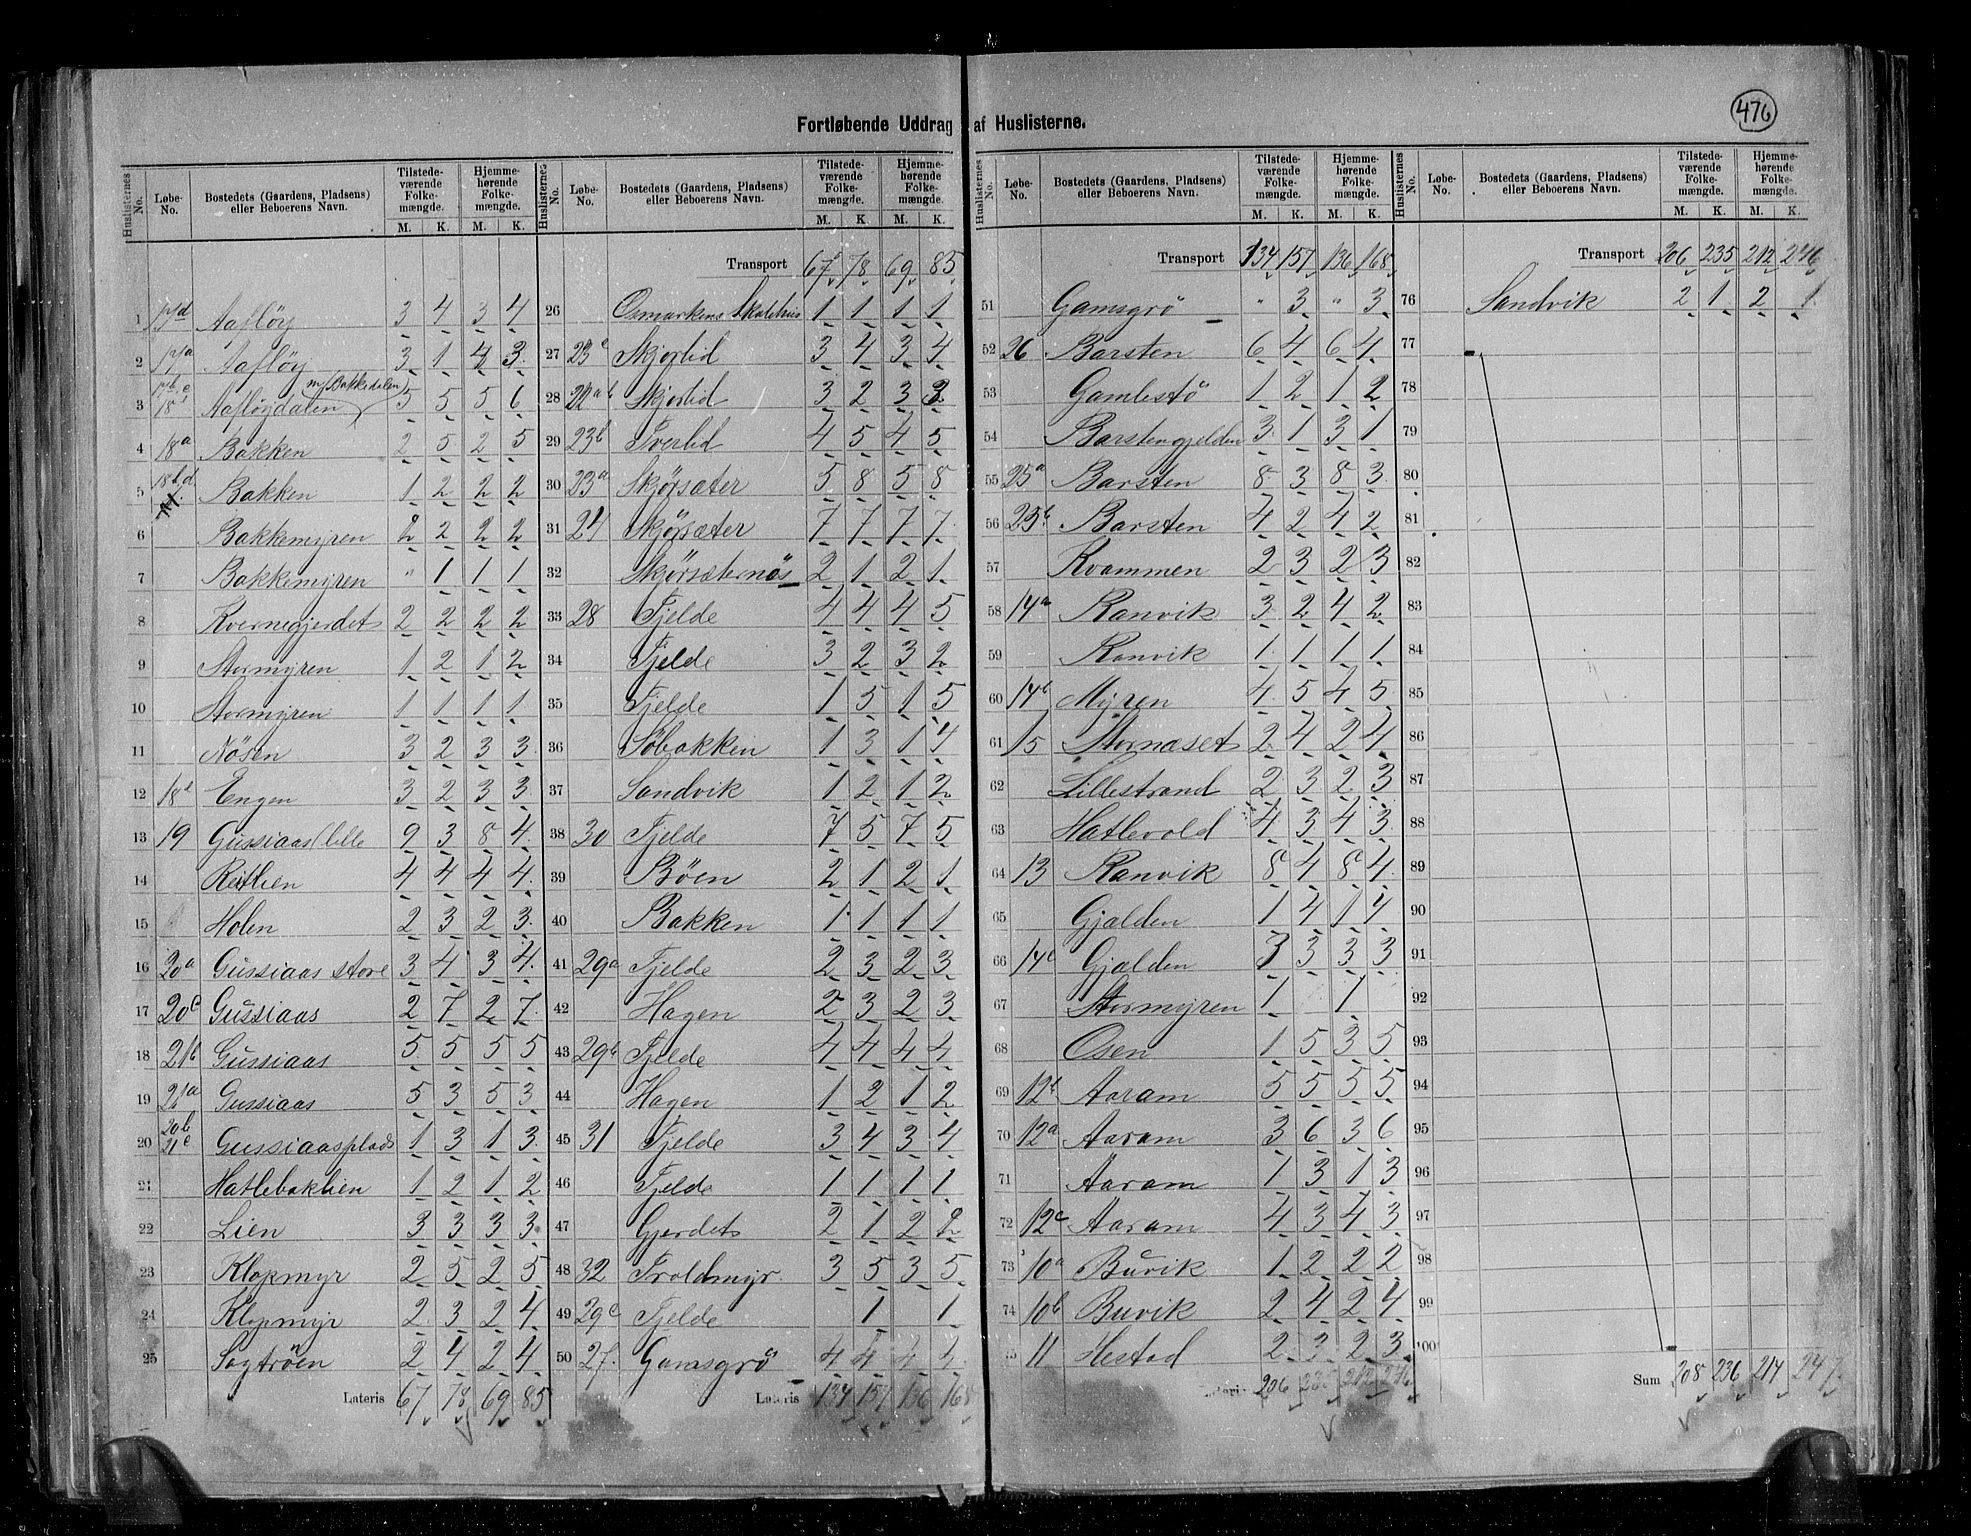 476
Fortløbende Uddrag af Huslisterne.
Huslisternes No. | Løbe-No. | Bostedets (Gaardens, Pladsens) eller Beboerens Navn. | Tilstedeværende Folkemængde. M. K. | Hjemmehørende Folkemængde. M. K.
1 Aafløy 3 4 3 4
2 Aafløy 3 1 4 3
3 Aafløydalen m/Bakkedalen 5 5 5 6
4 18a Bakken 2 5 2 5
5 Bakken 1 2 2 2
6 Bakkemyren 2 2 2 2
7 Bakkemyren " 1 1 1
8 Kvernegjerdet 2 2 2 2
9 Stormyren 1 2 1 2
10 Stormyren 1 1 1 1
11 Nøsen 3 2 3 3
12 Engen 3 2 3 3
13 19 Gussiaas lille 9 3 8 4
14 Reitlien 4 4 4 4
15 Holen 2 3 2 3
16 20a Gussiaas store 3 4 3 4
17 20c Gussiaas 2 7 2 7
18 21b Gussiaas 5 5 5 5
19 21a Gussiaas 5 3 5 3
20 20b 21c Gussiaasplads 1 3 1 3
21 Hatlebakken 1 2 1 2
22 Lien 3 3 3 3
23 Klopmyr 2 5 2 5
24 Klopmyr 2 3 2 4
25 Sagtrøen 2 4 2 4
Lateris 67 78 69 85
Huslisternes No. | Løbe-No. | Bostedets (Gaardens, Pladsens) eller Beboerens Navn. | Tilstedeværende Folkemængde. M. K. | Hjemmehørende Folkemængde. M. K.
Transport 67 78 69 85
26 Osmarkens Skolehus 1 1 1 1
27 23c Skjorlid 3 4 3 4
28 22ab Skjorlid 3 2 3 3
29 23b Tverlid 4 5 4 5
30 23a Skjørsæter 5 8 5 8
31 24 Skjørsæter 7 7 7 7
32 Skjørsæternøs 2 1 2 1
33 28 Fjelde 4 4 4 5
34 Fjelde 3 2 3 2
35 Fjelde 1 5 1 5
36 Søbakken 1 3 1 4
37 Sandvik 1 2 1 2
38 30 Fjelde 7 5 7 5
39 Bøen 2 1 2 1
40 Bakken 1 1 1 1
41 29a Fjelde 2 3 2 3
42 Hagen 2 3 2 3
43 29b Fjelde 4 4 4 4
44 Hagen 1 2 1 2
45 31 Fjelde 3 4 3 4
46 Fjelde 1 1 1 1
47 Gjerdet 2 1 2 2
48 32 Troldmyr. 3 5 3 5
49 29c Fjelde 1 1
50 27. Gamsgrø 4 4 4 4
Lateris 134 157 136 168
Huslisternes No. | Løbe-No. | Bostedets (Gaardens, Pladsens) eller Beboerens Navn. | Tilstedeværende Folkemængde. M. K. | Hjemmehørende Folkemængde. M. K.
Transport 134 157 136 168
51 Gamsgrø " 3 " 3
52 26 Barsten 6 4 6 4
53 Gamlestø 1 2 1 2
54 Barstengjelden 3 1 3 1
55 25a Barsten 8 3 8 3
56 25b Barsten 4 2 4 2
57 Kvammen 2 3 2 3
58 14a Ranvik 3 2 4 2
59 Ranvik 1 1 1 1
60 14b Myren 4 5 4 5
61 15 Stornæset 2 4 2 4
62 Lillestrand 2 3 2 3
63 Hatlevold 4 3 4 3
64 13 Ranvik 8 4 8 4
65 Gjalden 1 4 1 4
66 14c Gjalden 3 3 3 3
67 Stormyren 1 1
68 Osen 1 5 3 5
69 12b Aaram 5 5 5 5
70 12a Aaram 3 6 3 6
71 Aaram 1 3 1 3
72 12c Aaram 4 3 4 3
73 10a Buvik 1 2 2 2
74 10b Buvik 2 4 2 4
11 Hestad 2 3 2 3
206 235 212 246
Huslisternes No. | Løbe-No. | Bostedets (Gaardens, Pladsens) eller Beboerens Navn. | Tilstedeværende Folkemængde. M. K. | Hjemmehørende Folkemængde. M. K.
Transport 206 235 212 246
76 Sandvik 2 1 2 1
77
78
79
80
81
82
83
84
85
86
87
88
89
90
91
92
93
94
95
96
97
98
99
100
Sum 208 236 214 247